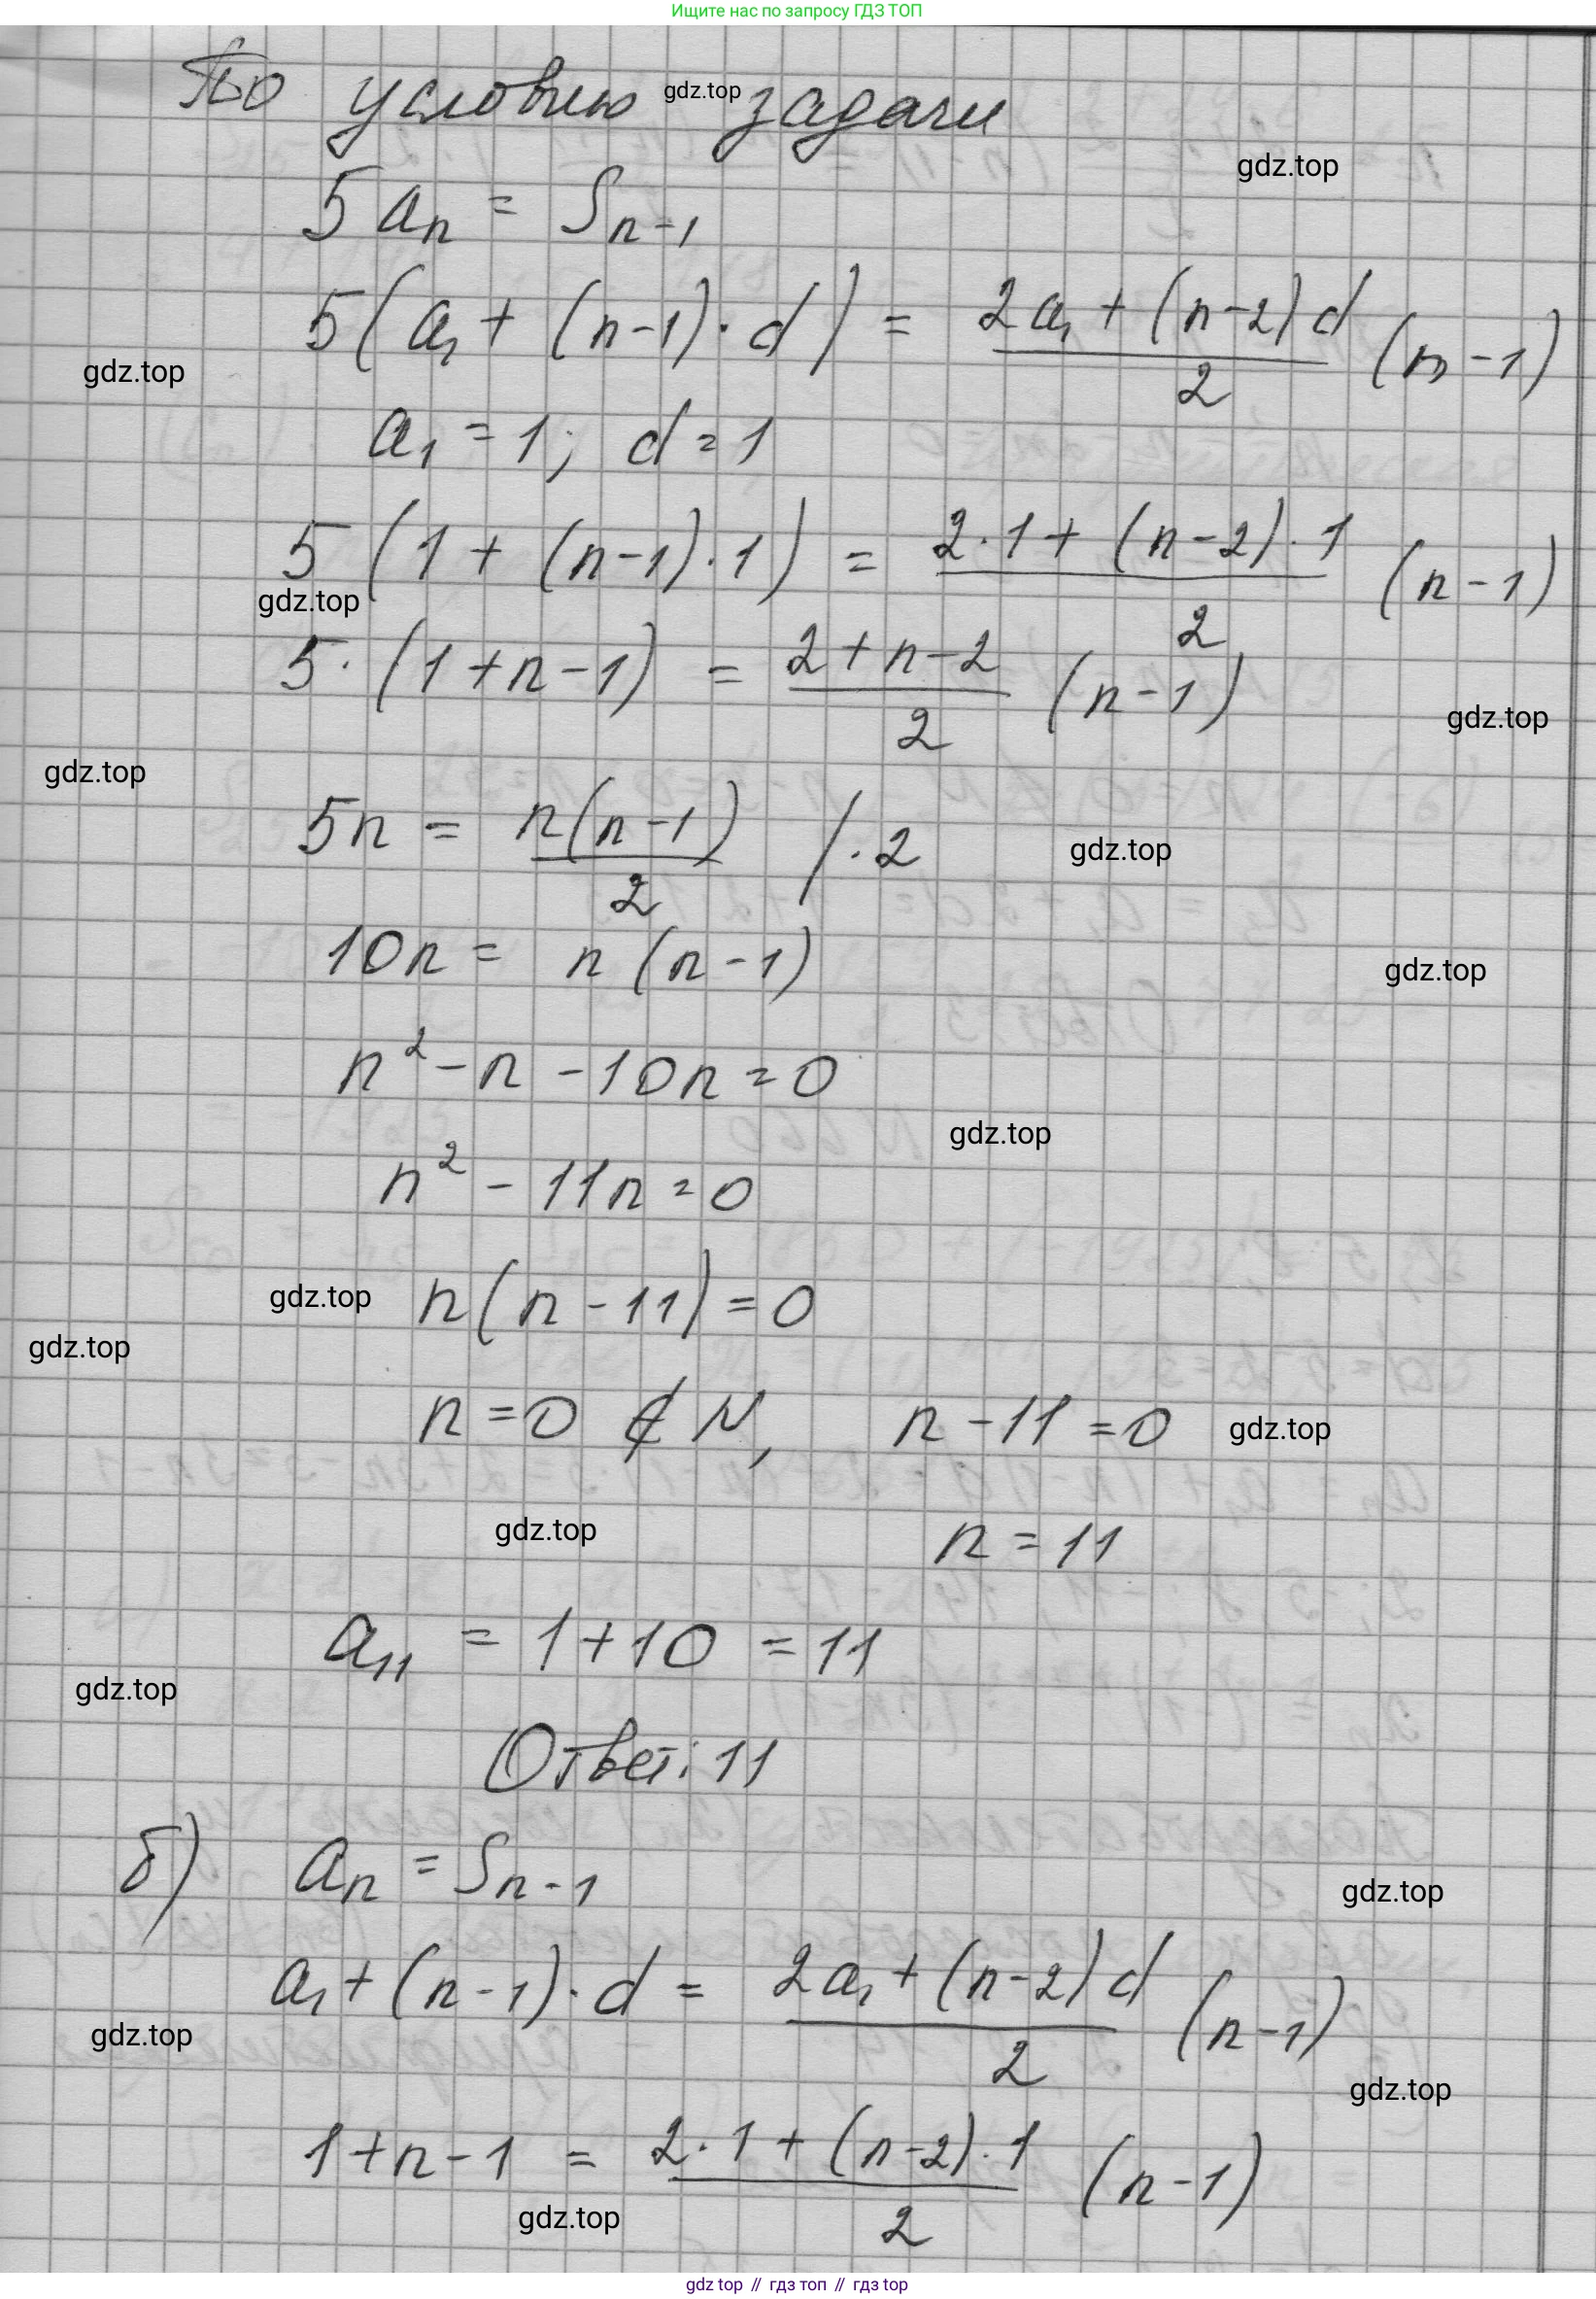 Ищите нас по запросу ГДЗ ТОП
По условию задачи
gdz.top
gdz.top
5aₙ = Sₙ₋₁
5(a₁ + (n-1)·d) = (2a₁ + (n-2)d)/2 (n-1)
gdz.top
a₁ = 1; d = 1
5(1 + (n-1)·1) = (2·1 + (n-2)·1)/2 (n-1)
gdz.top
5·(1+n-1) = (2+n-2)/2 (n-1)
gdz.top
gdz.top
5n = n(n-1)/2 /·2
gdz.top
10n = n(n-1)
gdz.top
n² - n - 10n = 0
gdz.top
n² - 11n = 0
gdz.top
n(n-11) = 0
gdz.top
n = 0 ∉ N, n - 11 = 0
gdz.top
gdz.top
n = 11
a₁₁ = 1+10 = 11
gdz.top
Ответ: 11
б) aₙ = Sₙ₋₁
gdz.top
a₁ + (n-1)·d = (2a₁ + (n-2)d)/2 (n-1)
gdz.top
gdz.top
1+n-1 = (2·1 + (n-2)·1)/2 (n-1)
gdz.top
gdz top // гдз топ // gdz top